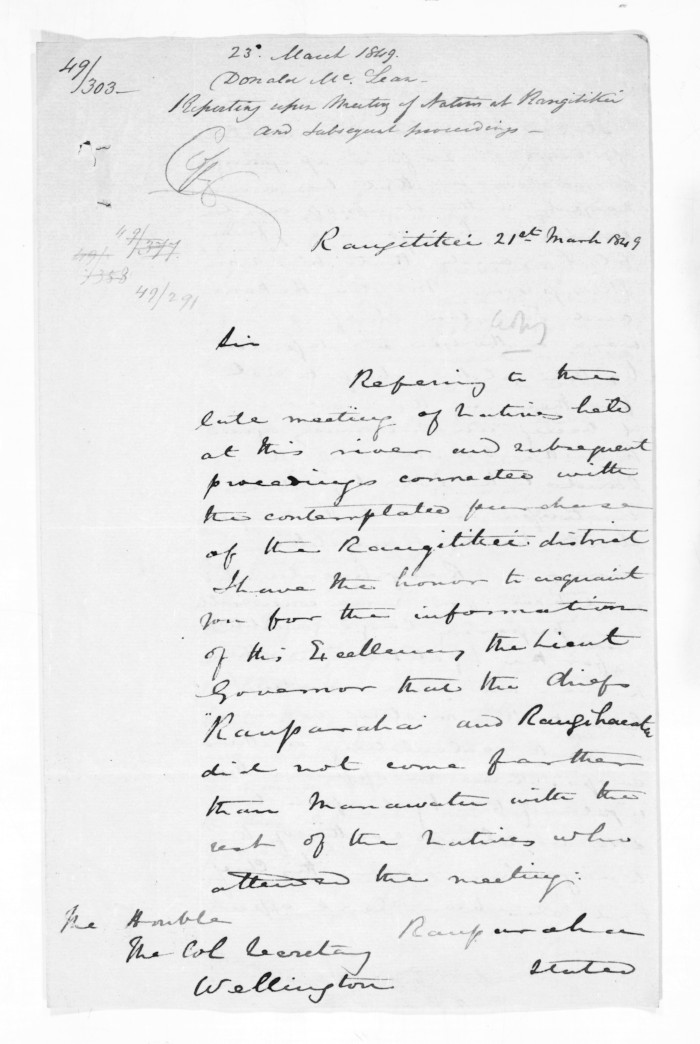 49/303-
23d. March 1849.
Donald Mc. Lean-
Reporting upon Meeting of Natives at Rangitikei
and subsequent proceedings-
Copy
49/377
49/358
49/291
Rangitikei 21st March 1849
Copy
Sir
Refering to the
late meeting of Natives held
at this river and subsequent
proceedings connected with
the contemplated purchase
of the Rangitikei district
I have the honor to acquaint
you for the information
of His Excellency the Lieut
Governor that the chiefs
"Rauparahai and Rangihaeata
did not come farther
than Manawatu with the
rest of the Natives who
attended the meeting.
Rauparaha
stated
The Honble
The Col Secretary
Wellington